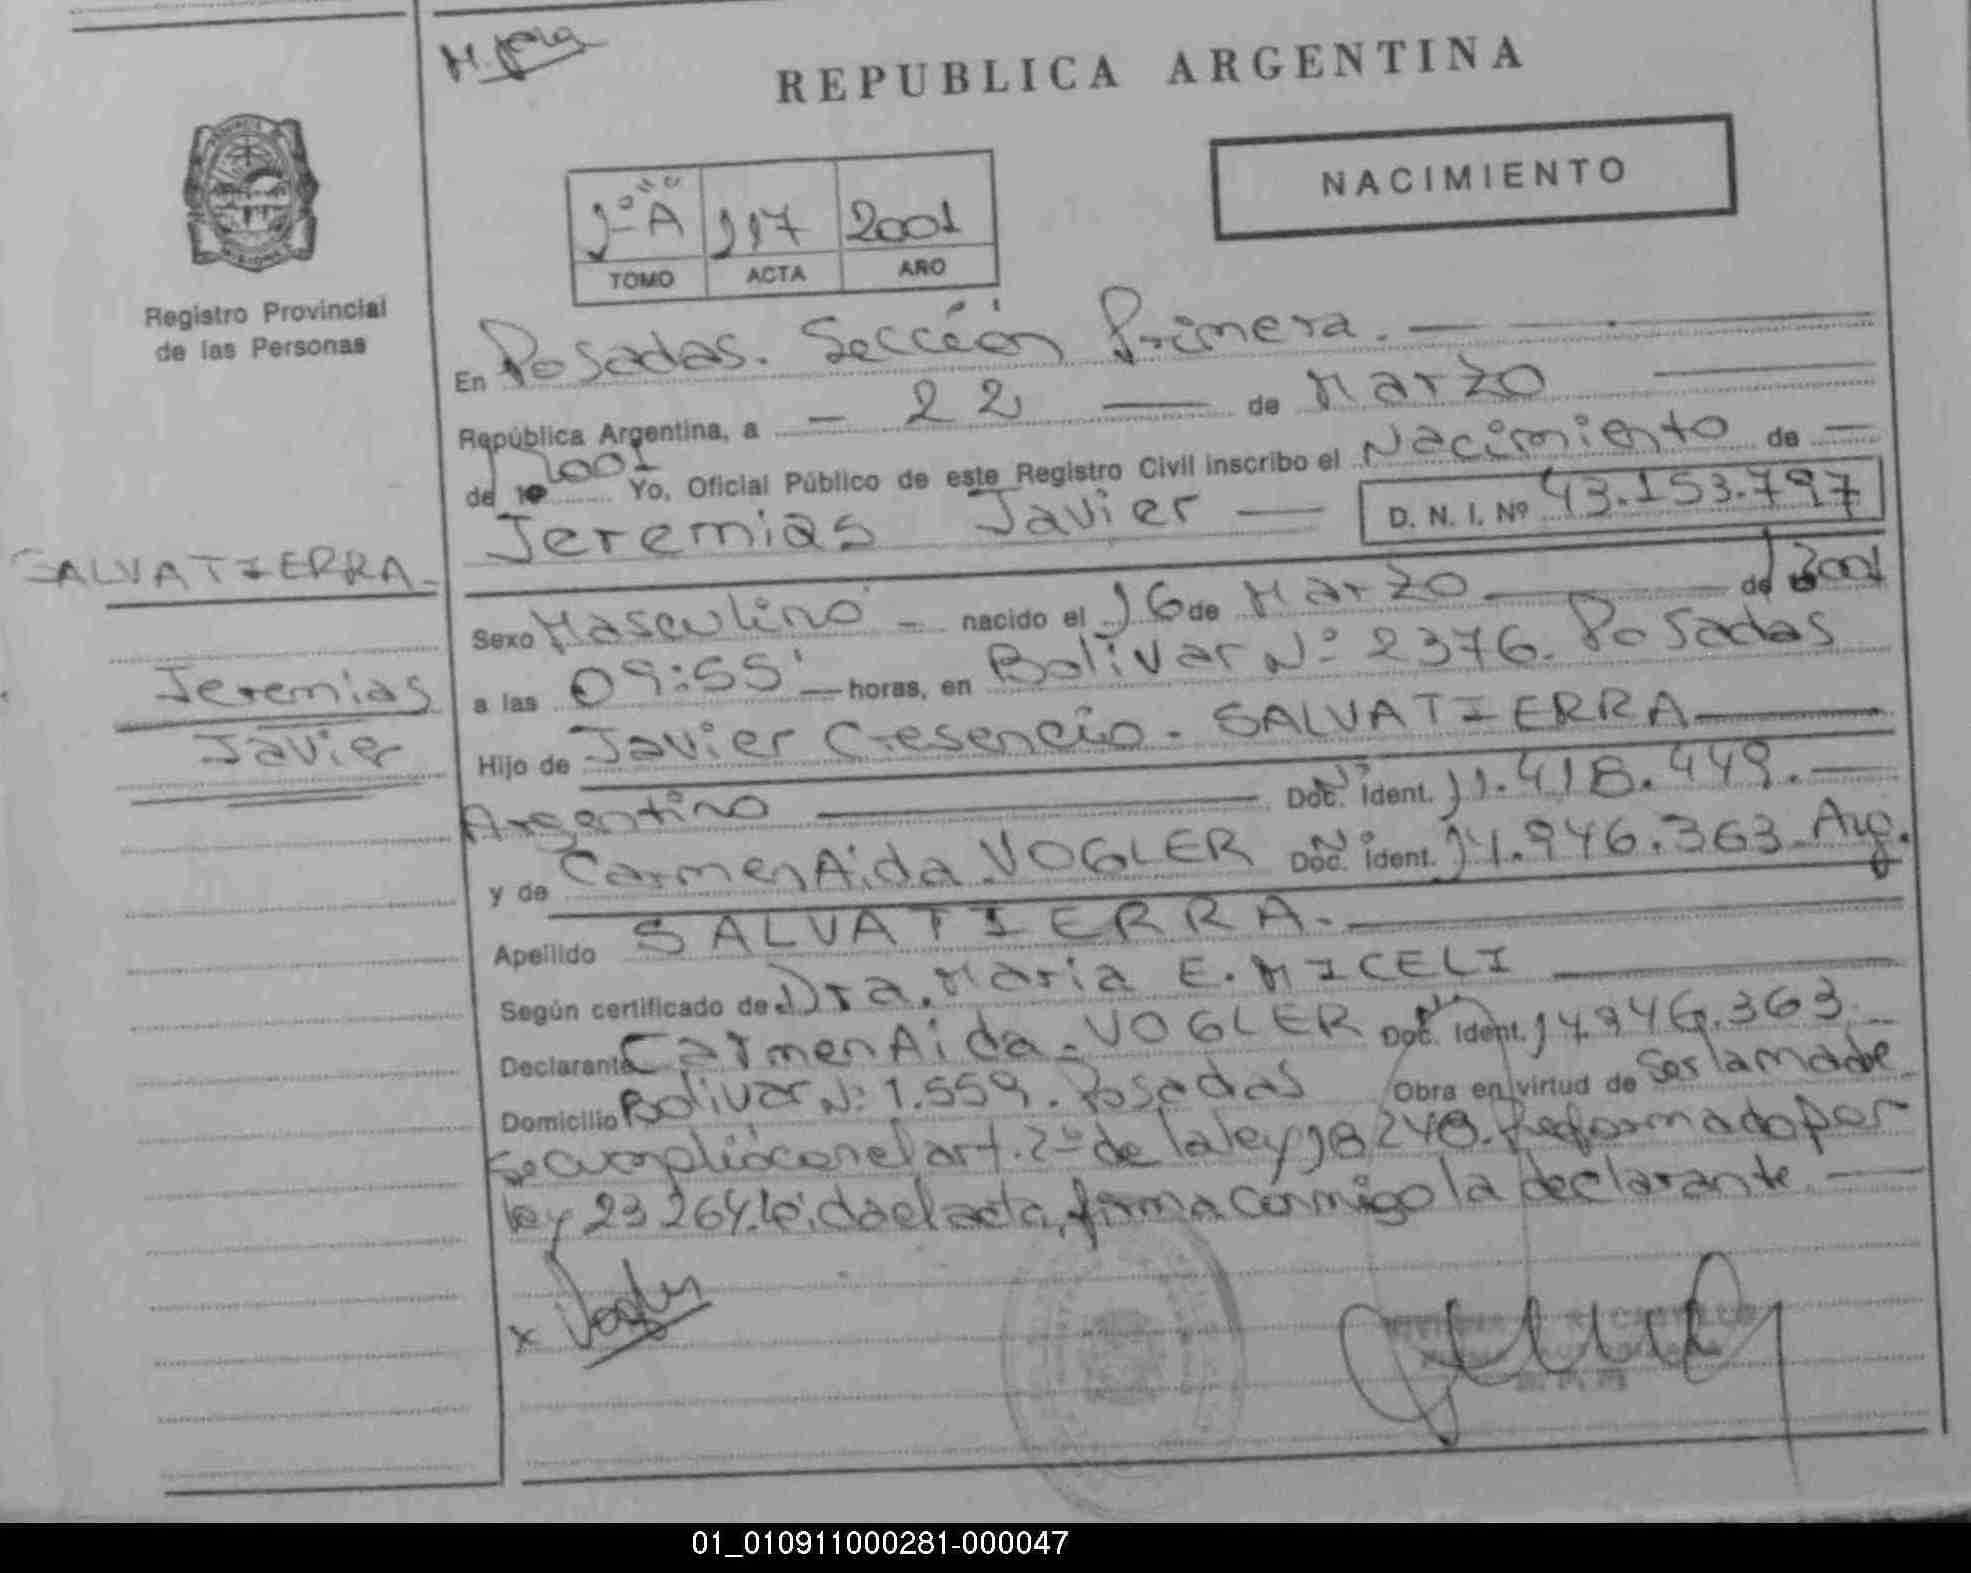 REPUBLICA ARGENTINA
NACIMIENTO
1º "A" 117 2001
TOMO ACTA AÑO
Registro Provincial
de las Personas
En Posadas. Sección Primera.
República Argentina, a - 22 - de Marzo
de 2001 Yo, Oficial Público de este Registro Civil inscribo el Nacimiento de -
Jeremias Javier - D. N. I. Nº 43.153.797
SALVATIERRA
Jeremias
Javier
Sexo Masculino - nacido el 16 de Marzo de 2001
a las 09:55' - horas, en Bolivar Nº 2376. Posadas
Hijo de Javier Cresencio. SALVATIERRA
Argentino Doc. Ident. 11.418.449.
y de Carmen Aida. VOGLER Doc. Ident. 14.946.363 Arg.
Apellido SALVATIERRA.
Según certificado de Dra. Maria E. MICELI
Declarante Carmen Aida. VOGLER Doc. Ident. 14.946.363
Domicilio Bolivar Nº 1.559. Posadas Obra en virtud de Ser la madre
se cumplió con el art. 2º de la ley 18248. Reformado por
ley 23264. Leida el acta, firma conmigo la declarante.
x Vogler
01_010911000281-000047